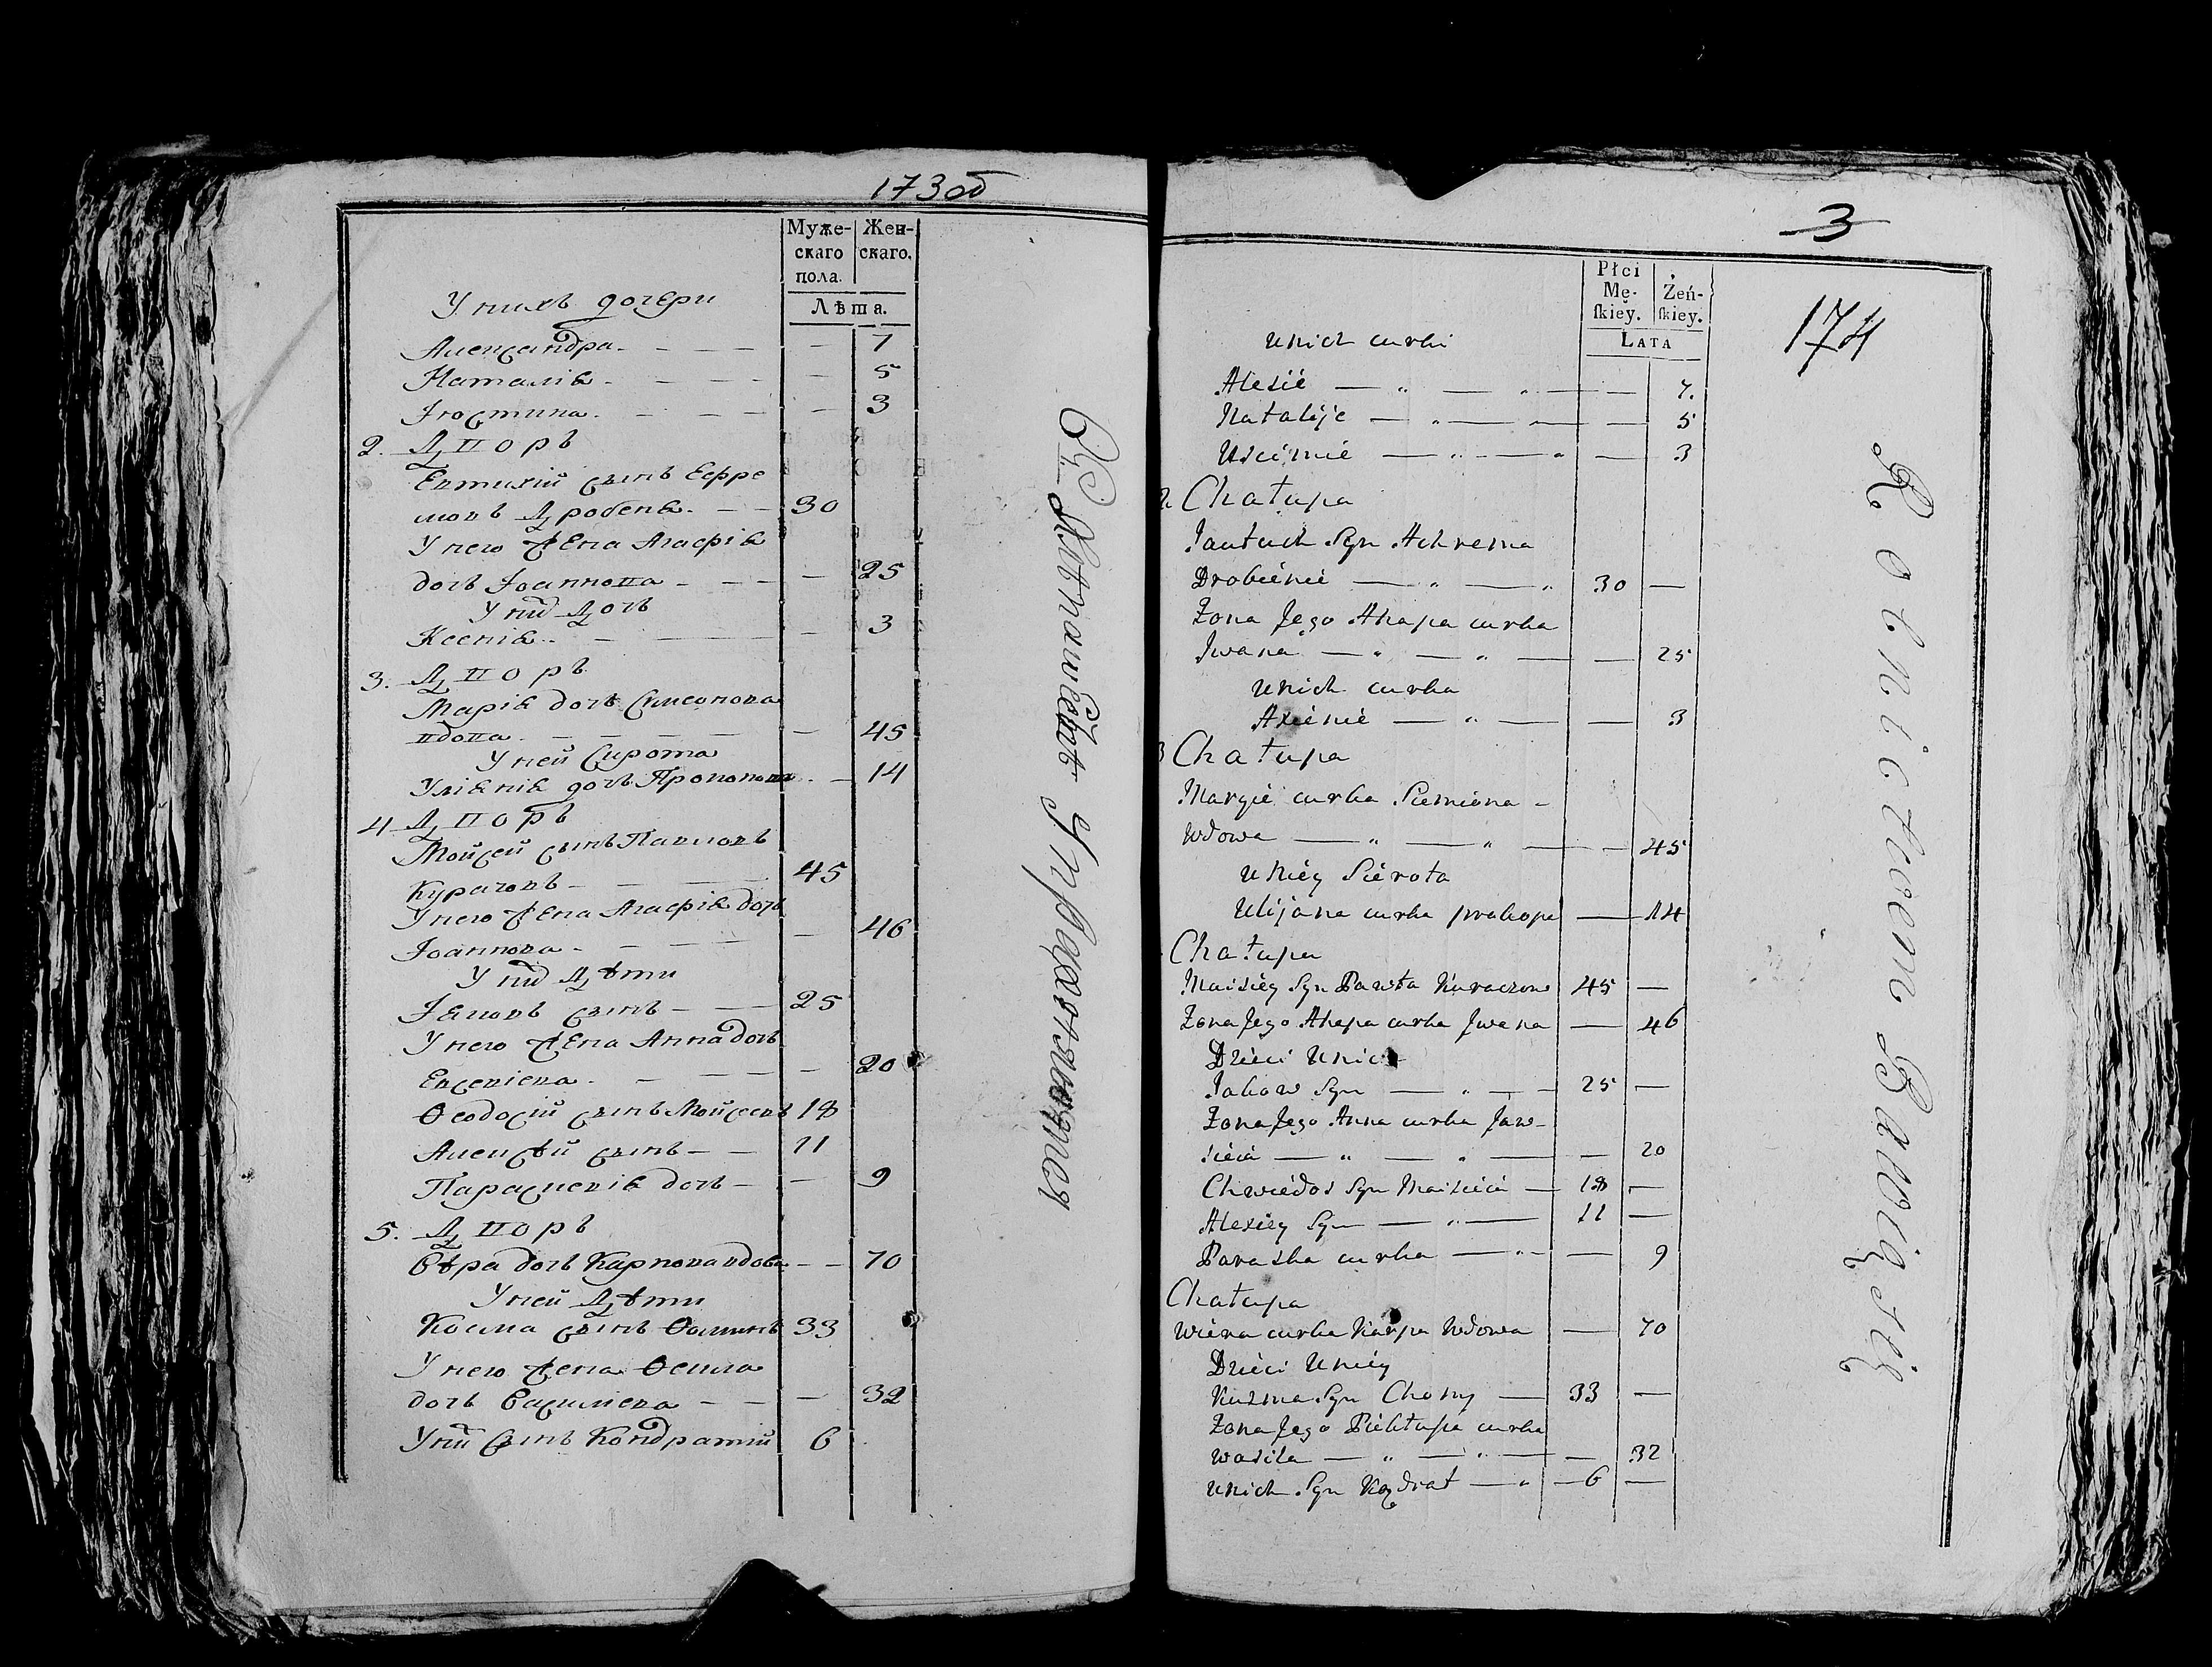 173об
Муже-
скаго
пола.
Жен-
скаго.
Лѣта.
У нихъ дочери
Александра - - - — 7
Наталія - - - — 5
Іюстина - - - — 3
2. Дворъ
Евтихій сынъ Ефре
мовъ Дробеня - - 30
У него жена Агафія
дочь Іоаннова - - - — 25
У них Дочь
Ксенія - — — 3
3. Дворъ
Марія дочь Симеонова
вдова - - - — 45
У ней Сирота
Уліянія дочь Прокопова - — 14
4 Дворъ
Мойсей сынъ Павловъ
Курачовъ - - - 45
У него жена Агафія дочь
Іоаннова - - - — 46
У них Дѣти
Іаковъ сынъ - — 25
У него жена Анна дочь
Евсевіева - - - — 20
Ѳеодосій сынъ Мойсеевъ 18
Алексѣй сынъ - — 11
Параскевія дочь - — 9
5. Дворъ
Вѣра дочь Карпова вдова - — 70
У ней Дѣти
Косма сынъ Ѳоминъ 33
У него жена Ѳекла
дочь Василиева - - — 32
У них сынъ Кондратій 6
Упражняются
3
174
Płci
Mę-
ſkiey.
Żeń-
ſkiey.
LATA
Unich curki
Alesié — „ — „ — — 7.
Natalije — „ — „ — — 5
Uscimié — „ — „ — 3
2 Chałupa
Jautuch Syn Achrema
Drobiénié — „ — „ 30 —
Zona Jego Ahapa curka
Jwana — „ — „ — — 25
Unich curka
Axiénié — „ — — 3
3 Chałupa
Maryié curka Siemiona -
Wdowa — „ — „ — — 45
Uniéy Siérota
Ulijana curka prakopa — 14
Chałupa
Maisiéy Syn Pawła Kuraczow 45 —
Zona Jego Ahapa curka Jwana — 46
Dziéci Unich
Jakow Syn — „ — 25 —
Zona Jego Anna curka Jaw-
siéiá — „ — „ — — 20
Chwiédos Syn Maisiéiá — 18 —
Alexiéy Syn — „ — 11 —
Paraska curka — „ — — 9
Chałupa
Wiéra curka Karpa Wdowa — 70
Dziéci Uniéy
Kuzma Syn Chomy — 33 —
Zona Jego Piéktupa curka
Wasila — „ — „ — — 32
Unich Syn Kądrat — „ — 6 —
Rolnictwem Bawią się